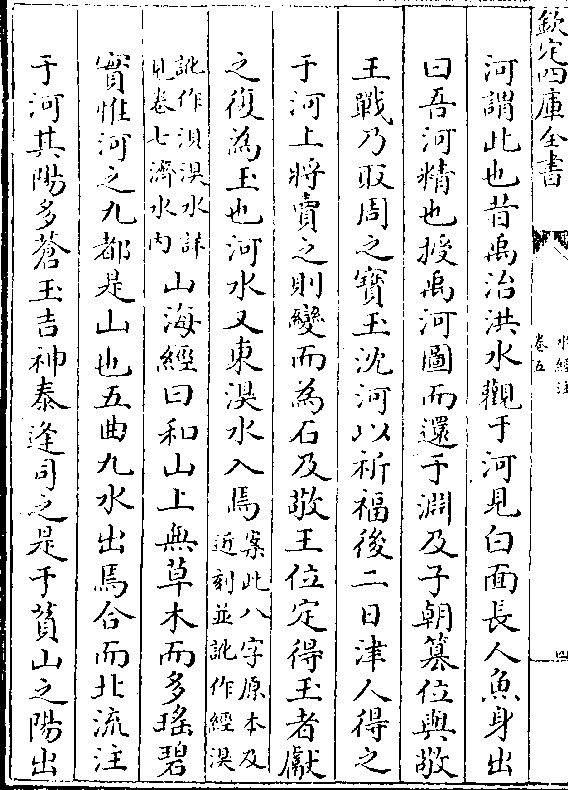 欽定四庫全書
水經注
卷五
四
河謂此也昔禹治洪水觀于河見白面長人魚身出
曰吾河精也授禹河圖而還于淵及子朝篡位與敬
王戰乃取周之寶玉沈河以祈福後二日津人得之
于河上將賣之則變而為石及敬王位定得玉者獻
之復為玉也河水又東淏水入焉案此八字原本及近刻並訛作經淏
訛作湨淏水詳見卷七濟水内山海經曰和山上無草木而多瑤碧
實惟河之九都是山也五曲九水出焉合而北流注
于河其陽多蒼玉吉神泰逢司之是于萯山之陽出